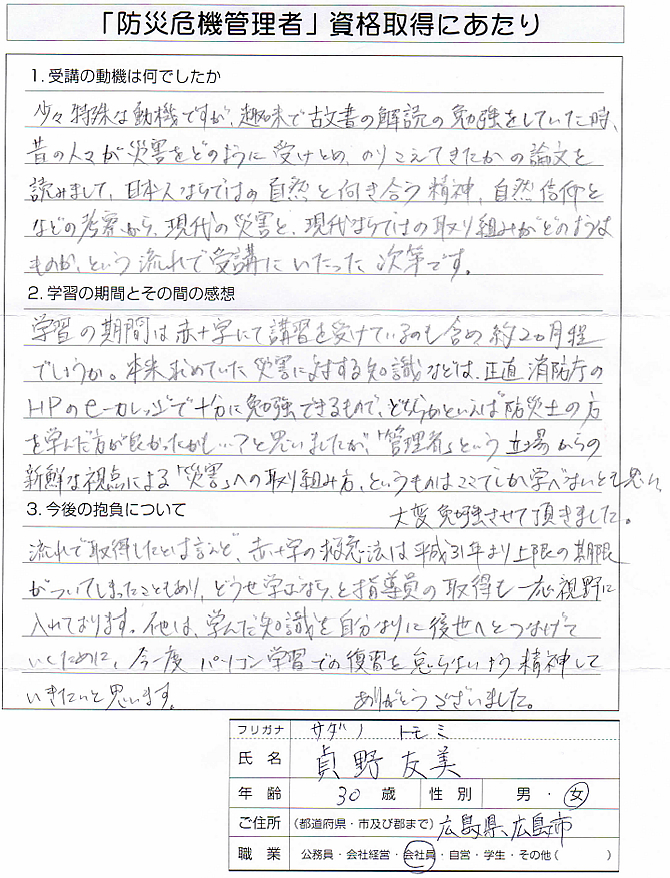 「防災危機管理者」資格取得にあたり
1. 受講の動機は何でしたか
少々特殊な動機ですが、趣味で古文書の解読の勉強をしていた時、
昔の人々が災害をどのように受けとめ、のりこえてきたかの論文を
読みまして、日本人ならではの自然と向き合う精神、自然信仰と
などの考察から、現代の災害と、現代ならではの取り組みがどのような
ものか、という流れで受講にいたった次第です。
2. 学習の期間とその間の感想
学習の期間は赤十字にて講習を受けているのも含め約2ヵ月程
でしょうか。本来求めていた災害に対する知識などは、正直消防庁の
HPのe-カレッジで十分に勉強できるもので、どちらかといえば防災士の方
を学んだ方が良かったかも…?と思いましたが、「管理者」という立場からの
新鮮な視点による「災害」への取り組み方、というものはここでしか学べないとも思い、
大変勉強させて頂きました。
3. 今後の抱負について
流れで取得したとは言えど、赤十字の救急法は平成31年より上限の期限
がついてしまったこともあり、どうせ学ぶなら、と指導員の取得も一応視野に
入れております。他は、学んだ知識を自分なりに後世へとつなげて
いくために、今一度パソコン学習での復習を怠らないよう精神して
いきたいと思います。 ありがとうございました。
フリガナ サダノ トモミ
氏名 貞野 友美
年齢 30 歳 性別 男・女
ご住所 (都道府県・市及び郡まで) 広島県、広島市
職業 公務員・会社経営・会社員・自営・学生・その他( )